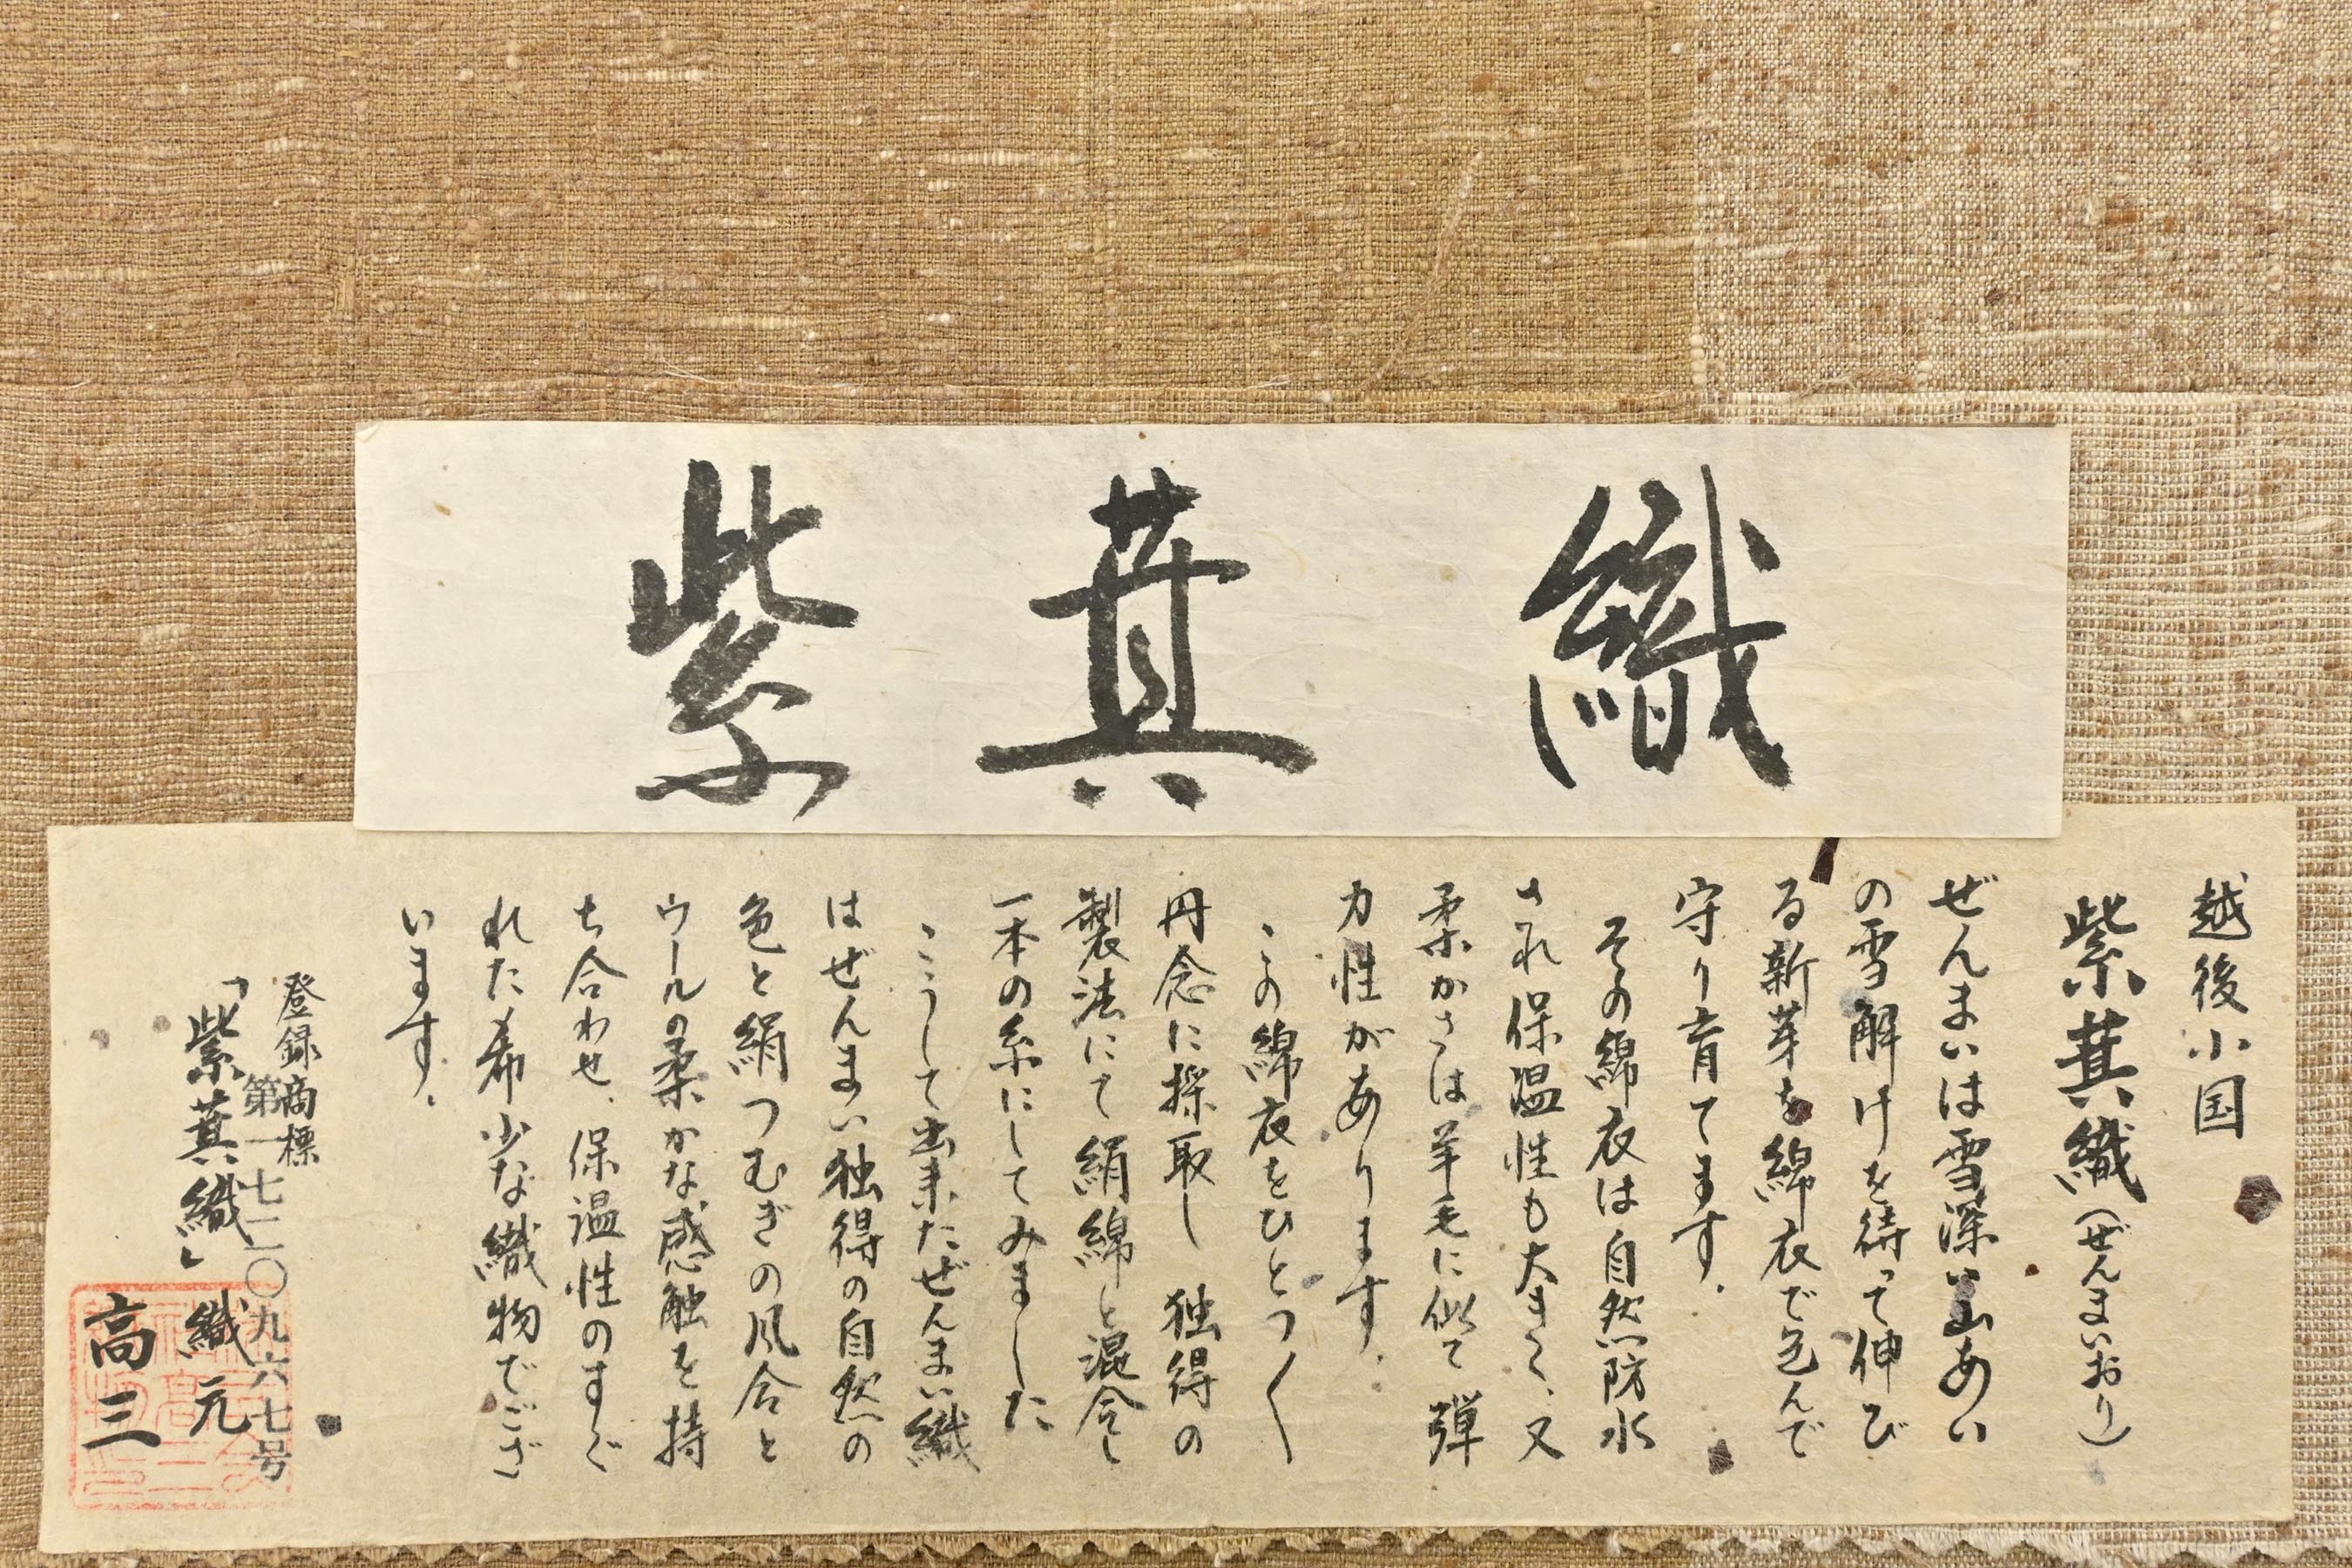 紫萁織
越後小国
紫萁織(ぜんまいおり)
ぜんまいは雪深い山あい
の雪解けを待って伸び
る新芽を綿衣で包んで
守り育てます。
その綿衣は自然防水
され保温性も大きく、又
柔かさは羊毛に似て弾
力性があります。
この綿衣をひとつ〳〵
丹念に採取し 独得の
製法にて絹綿と混合し
一本の糸にしてみました
こうして出来たぜんまい織
はぜんまい独得の自然の
色と絹つむぎの風合と
ウールの柔かな感触を持
ち合わせ、保温性のすぐ
れた希少な織物でござ
います。
登録商標
第一七二〇九六七号
「紫萁織」織元
高三